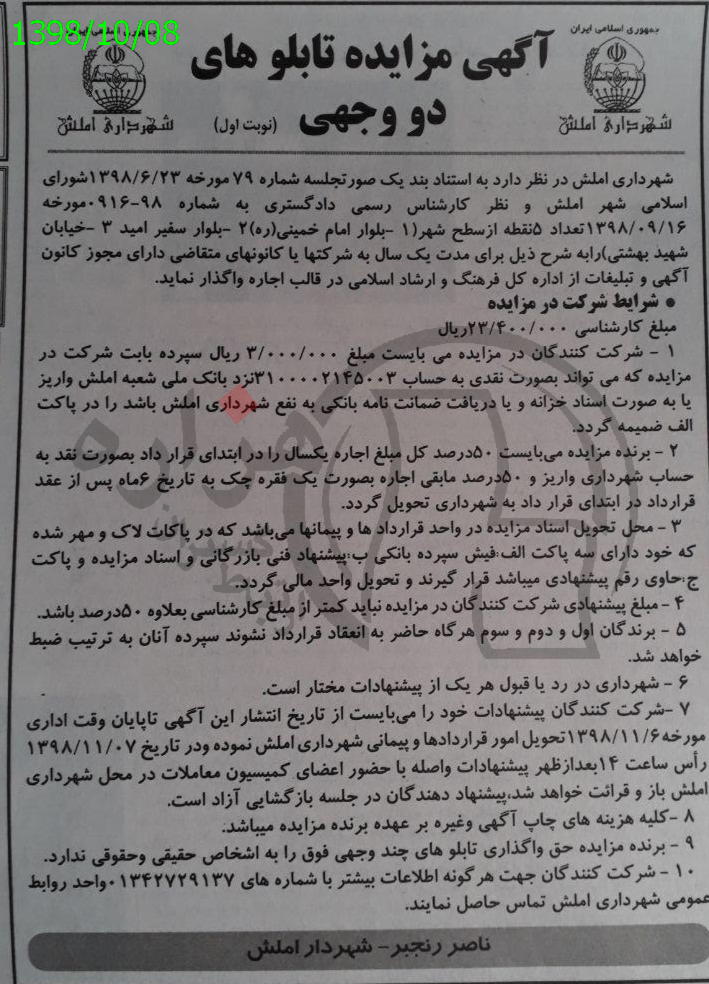 1398/10/08
جمهوری اسلامی ایران
شهرداری املش
جمهوری اسلامی ایران
شهرداری املش
آگهی مزایده تابلو های
دو وجهی (نوبت اول)
شهرداری املش در نظر دارد به استناد بند یک صورتجلسه شماره ۷۹ مورخه ۱۳۹۸/۶/۲۳شورای
اسلامی شهر املش و نظر کارشناس رسمی دادگستری به شماره ۹۸-۰۹۱۶مورخه
۱۳۹۸/۰۹/۱۶تعداد ۵نقطه ازسطح شهر(۱ -بلوار امام خمینی(ره)۲ -بلوار سفیر امید ۳ -خیابان
شهید بهشتی)رابه شرح ذیل برای مدت یک سال به شرکتها یا کانونهای متقاضی دارای مجوز کانون
آگهی و تبلیغات از اداره کل فرهنگ و ارشاد اسلامی در قالب اجاره واگذار نماید.
● شرایط شرکت در مزایده
مبلغ کارشناسی ۲۳/۴۰۰/۰۰۰ریال
۱ - شرکت کنندگان در مزایده می بایست مبلغ ۳/۰۰۰/۰۰۰ ریال سپرده بابت شرکت در
مزایده که می تواند بصورت نقدی به حساب ۳۱۰۰۰۰۲۱۴۵۰۰۳نزد بانک ملی شعبه املش واریز
یا به صورت اسناد خزانه و یا دریافت ضمانت نامه بانکی به نفع شهرداری املش باشد را در پاکت
الف ضمیمه گردد.
۲ - برنده مزایده می‌بایست ۵۰درصد کل مبلغ اجاره یکسال را در ابتدای قرار داد بصورت نقد به
حساب شهرداری واریز و ۵۰درصد مابقی اجاره بصورت یک فقره چک به تاریخ ۶ماه پس از عقد
قرارداد در ابتدای قرار داد به شهرداری تحویل گردد.
۳ - محل تحویل اسناد مزایده در واحد قرارداد ها و پیمانها می‌باشد که در پاکات لاک و مهر شده
که خود دارای سه پاکت الف:فیش سپرده بانکی ب:پیشنهاد فنی بازرگانی و اسناد مزایده و پاکت
ج:حاوی رقم پیشنهادی میباشد قرار گیرند و تحویل واحد مالی گردد.
۴ - مبلغ پیشنهادی شرکت کنندگان در مزایده نباید کمتر از مبلغ کارشناسی بعلاوه ۵۰درصد باشد.
۵ - برندگان اول و دوم و سوم هرگاه حاضر به انعقاد قرارداد نشوند سپرده آنان به ترتیب ضبط
خواهد شد.
۶ - شهرداری در رد یا قبول هر یک از پیشنهادات مختار است.
۷ -شرکت کنندگان پیشنهادات خود را می‌بایست از تاریخ انتشار این آگهی تاپایان وقت اداری
مورخه۱۳۹۸/۱۱/۶تحویل امور قراردادها و پیمانی شهرداری املش نموده ودر تاریخ ۱۳۹۸/۱۱/۰۷
رأس ساعت ۱۴بعدازظهر پیشنهادات واصله با حضور اعضای کمیسیون معاملات در محل شهرداری
املش باز و قرائت خواهد شد،پیشنهاد دهندگان در جلسه بازگشایی آزاد است.
۸ -کلیه هزینه های چاپ آگهی وغیره بر عهده برنده مزایده میباشد.
۹ - برنده مزایده حق واگذاری تابلو های چند وجهی فوق را به اشخاص حقیقی وحقوقی ندارد.
۱۰ - شرکت کنندگان جهت هرگونه اطلاعات بیشتر با شماره های ۰۱۳۴۲۷۲۹۱۳۷واحد روابط
عمومی شهرداری املش تماس حاصل نمایند.
ناصر رنجبر- شهردار املش
هزاره